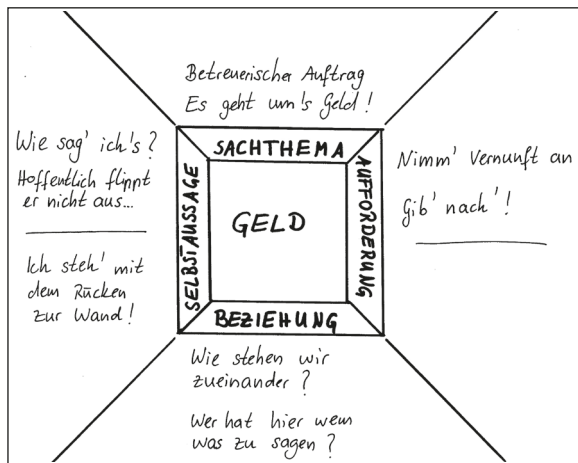 Betreuerischer Auftrag
Es geht um's Geld !
Wie sag' ich's ?
Hoffentlich flippt
er nicht aus...
Ich steh' mit
dem Rücken
zur Wand !
SACHTHEMA
SELBSTAUSSAGE
GELD
AUFFORDERUNG
BEZIEHUNG
Nimm' Vernunft an
Gib' nach' !
Wie stehen wir
zueinander ?
Wer hat hier wem
was zu sagen ?